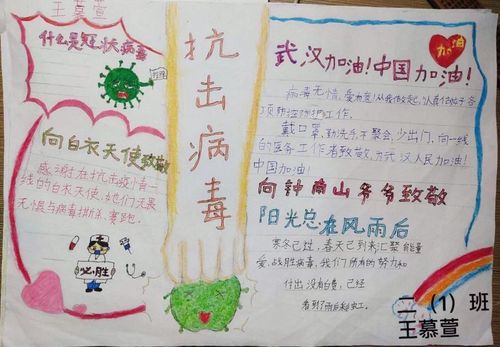 王慕萱
什么是冠状病毒
向白衣天使致敬
感谢在抗击疫情一
线的白衣天使,她们无畏
无惧与病毒拼杀、赛跑。
必胜
抗击病毒
加油
武汉加油!中国加油!
病毒无情,爱有意!从我做起,认真做好各
项防控防护工作。
戴口罩,勤洗手,不聚会,少出门,向一线
的医务工作者致敬,为武汉人民加油!
中国加油!
向钟南山爷爷致敬
阳光总在风雨后
寒冬已过,春天已到来汇聚能量
爱,战胜病毒,我们所有的努力和
付出没有白费,已经
看到了雨后彩虹。
二(1)班
王慕萱